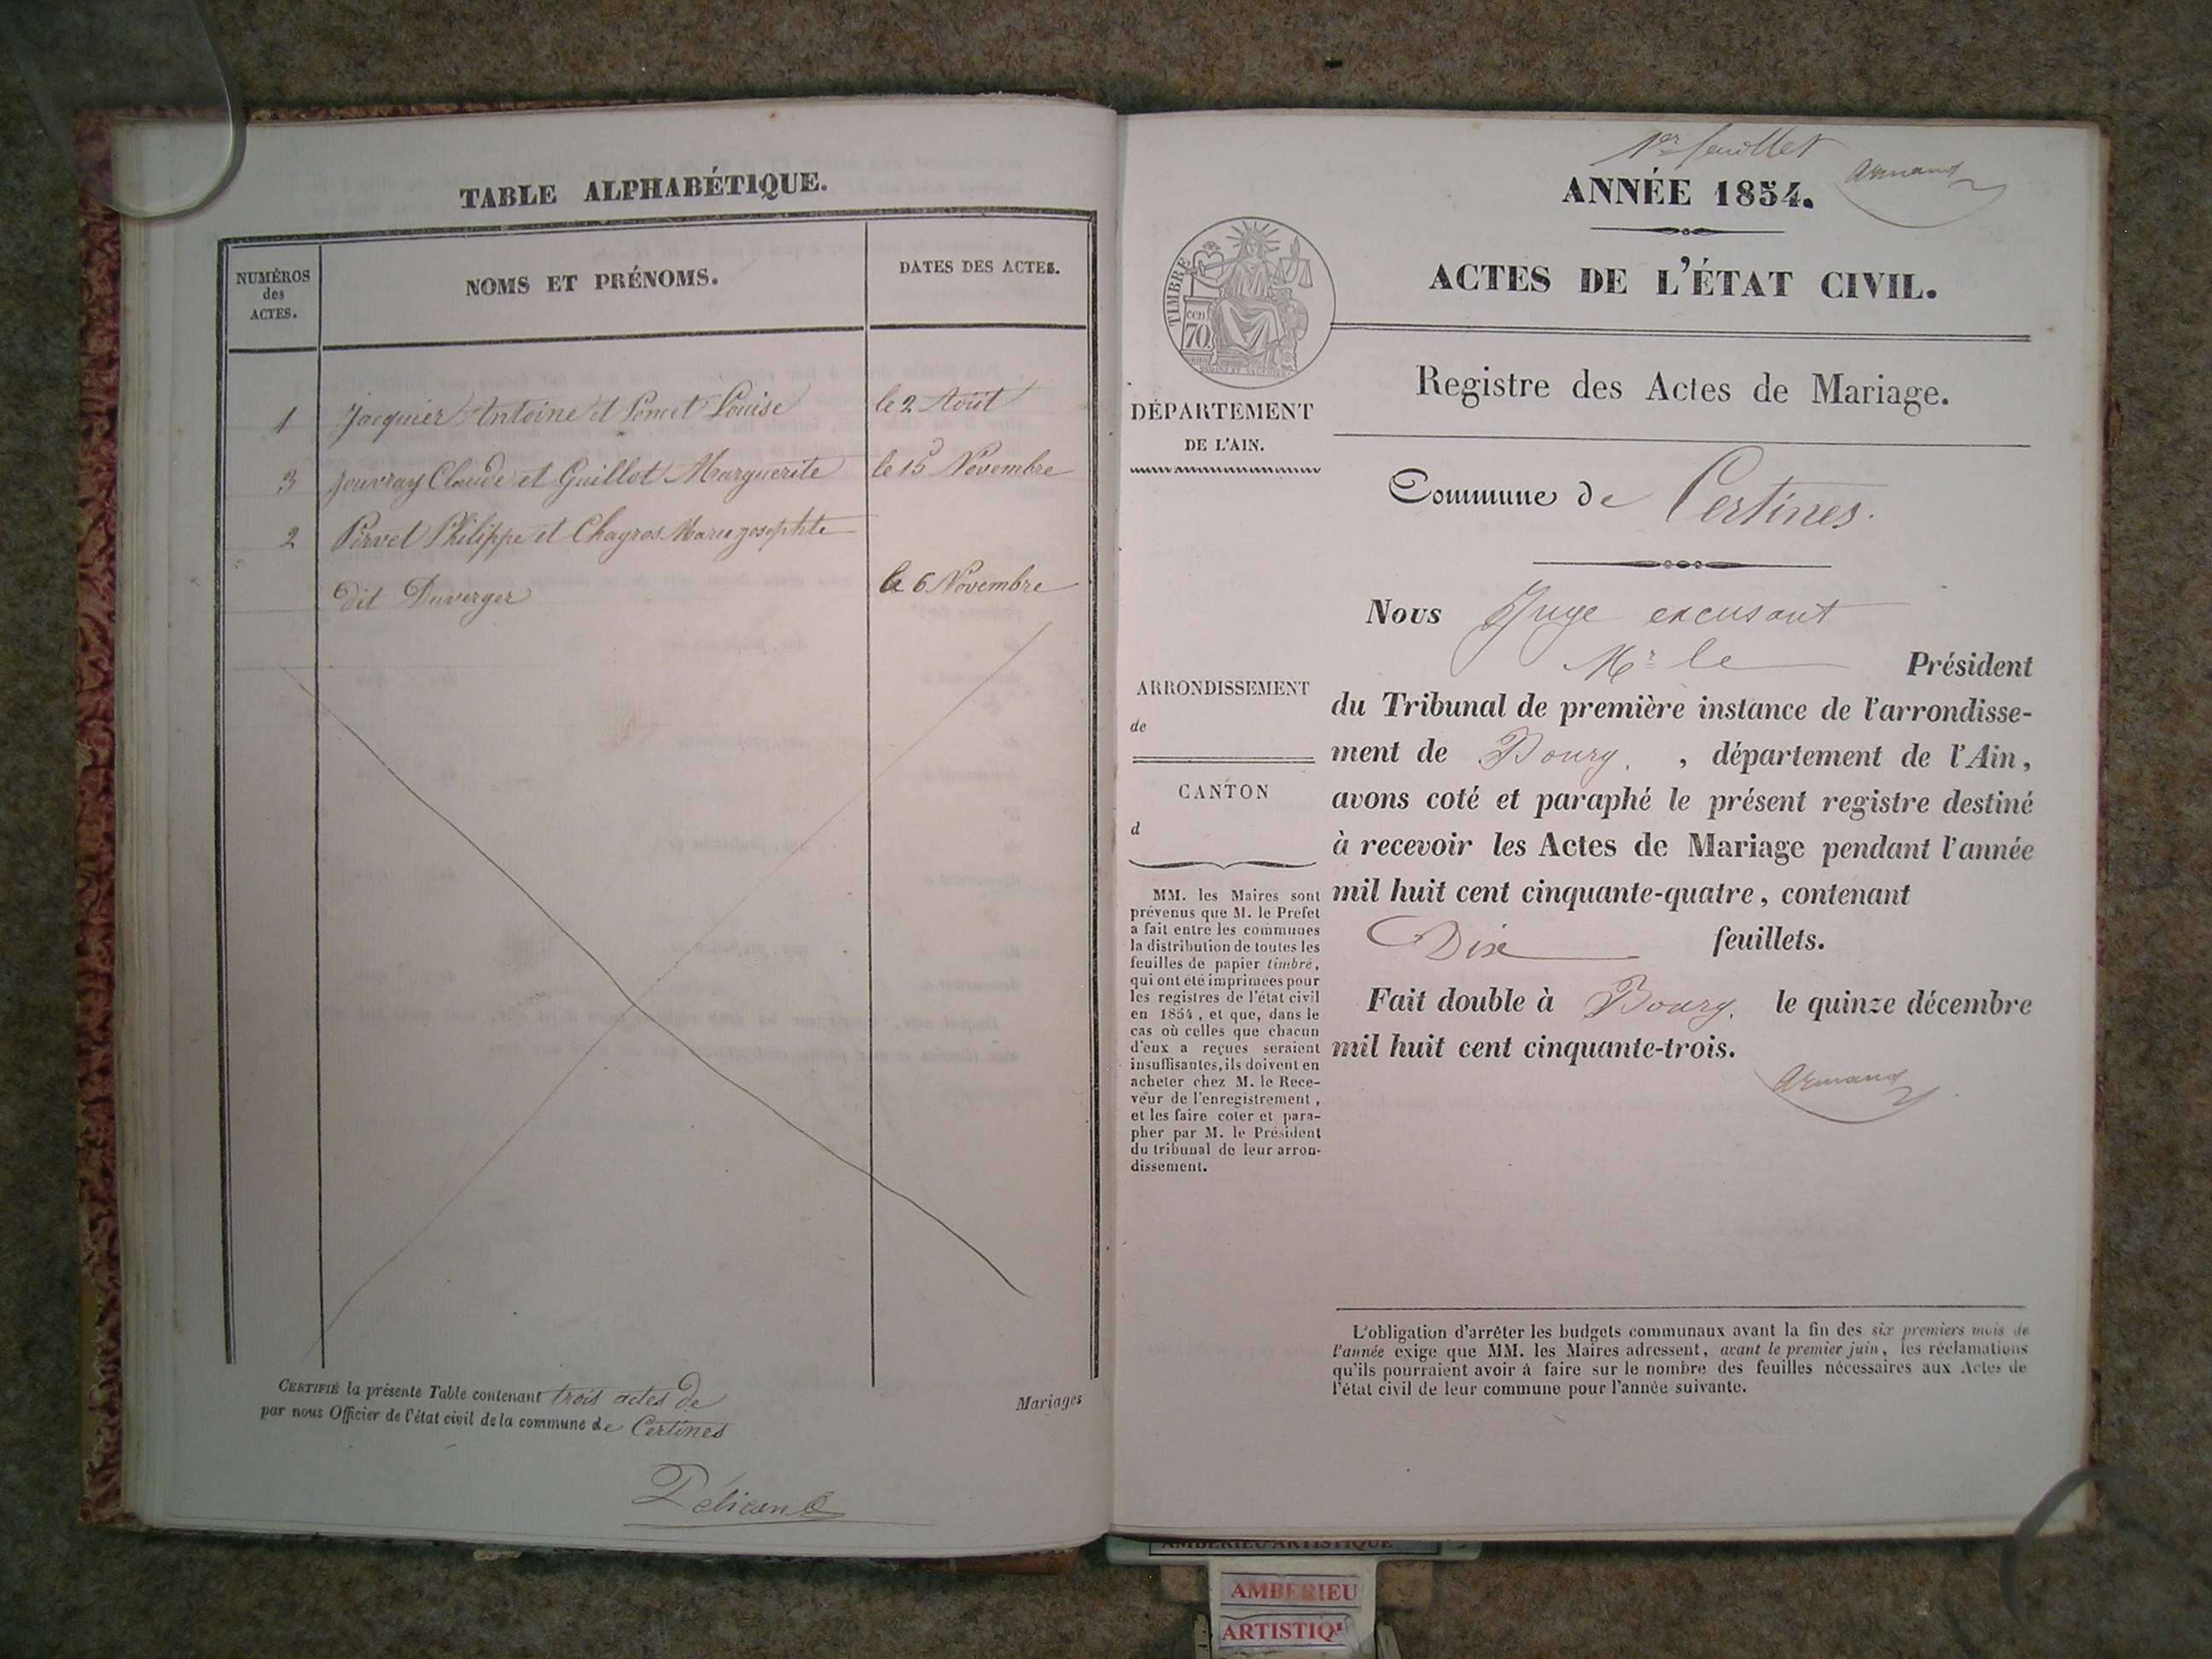 TABLE ALPHABÉTIQUE.
NUMÉROS
des
ACTES.
NOMS ET PRÉNOMS.
DATES DES ACTES.
1 Jacquier Antoine et Poncet Louise le 2 Août
3 Jouvray Claude et Guillot Marguerite le 15 Novembre
2 Pervet Philippe et Chagros Marie josephte
dit Duverger le 6 Novembre
CERTIFIÉ la présente Table contenant trois actes de Mariages
par nous Officier de l'état civil de la commune de Certines
Pélican
1er feuillet
Armand
ANNÉE 1854.
ACTES DE L'ÉTAT CIVIL.
TIMBRE
cen
70
Registre des Actes de Mariage.
DÉPARTEMENT
DE L'AIN.
Commune de Certines.
ARRONDISSEMENT
de
CANTON
d
MM. les Maires sont
prévenus que M. le Préfet
a fait entre les communes
la distribution de toutes les
feuilles de papier timbré,
qui ont été imprimées pour
les registres de l'état civil
en 1854, et que, dans le
cas où celles que chacun
d'eux a reçues seraient
insuffisantes, ils doivent en
acheter chez M. le Rece-
veur de l'enregistrement,
et les faire coter et para-
pher par M. le Président
du tribunal de leur arron-
dissement.
Nous Juge excusant
Mr le Président
du Tribunal de première instance de l'arrondisse-
ment de Bourg. , département de l'Ain,
avons coté et paraphé le présent registre destiné
à recevoir les Actes de Mariage pendant l'année
mil huit cent cinquante-quatre, contenant
Dix feuillets.
Fait double à Bourg. le quinze décembre
mil huit cent cinquante-trois.
Armand
L'obligation d'arrêter les budgets communaux avant la fin des six premiers mois de
l'année exige que MM. les Maires adressent, avant le premier juin, les réclamations
qu'ils pourraient avoir à faire sur le nombre des feuilles nécessaires aux Actes de
l'état civil de leur commune pour l'année suivante.
AMBERIEU ARTISTIQUE
AMBERIEU
ARTISTIQU